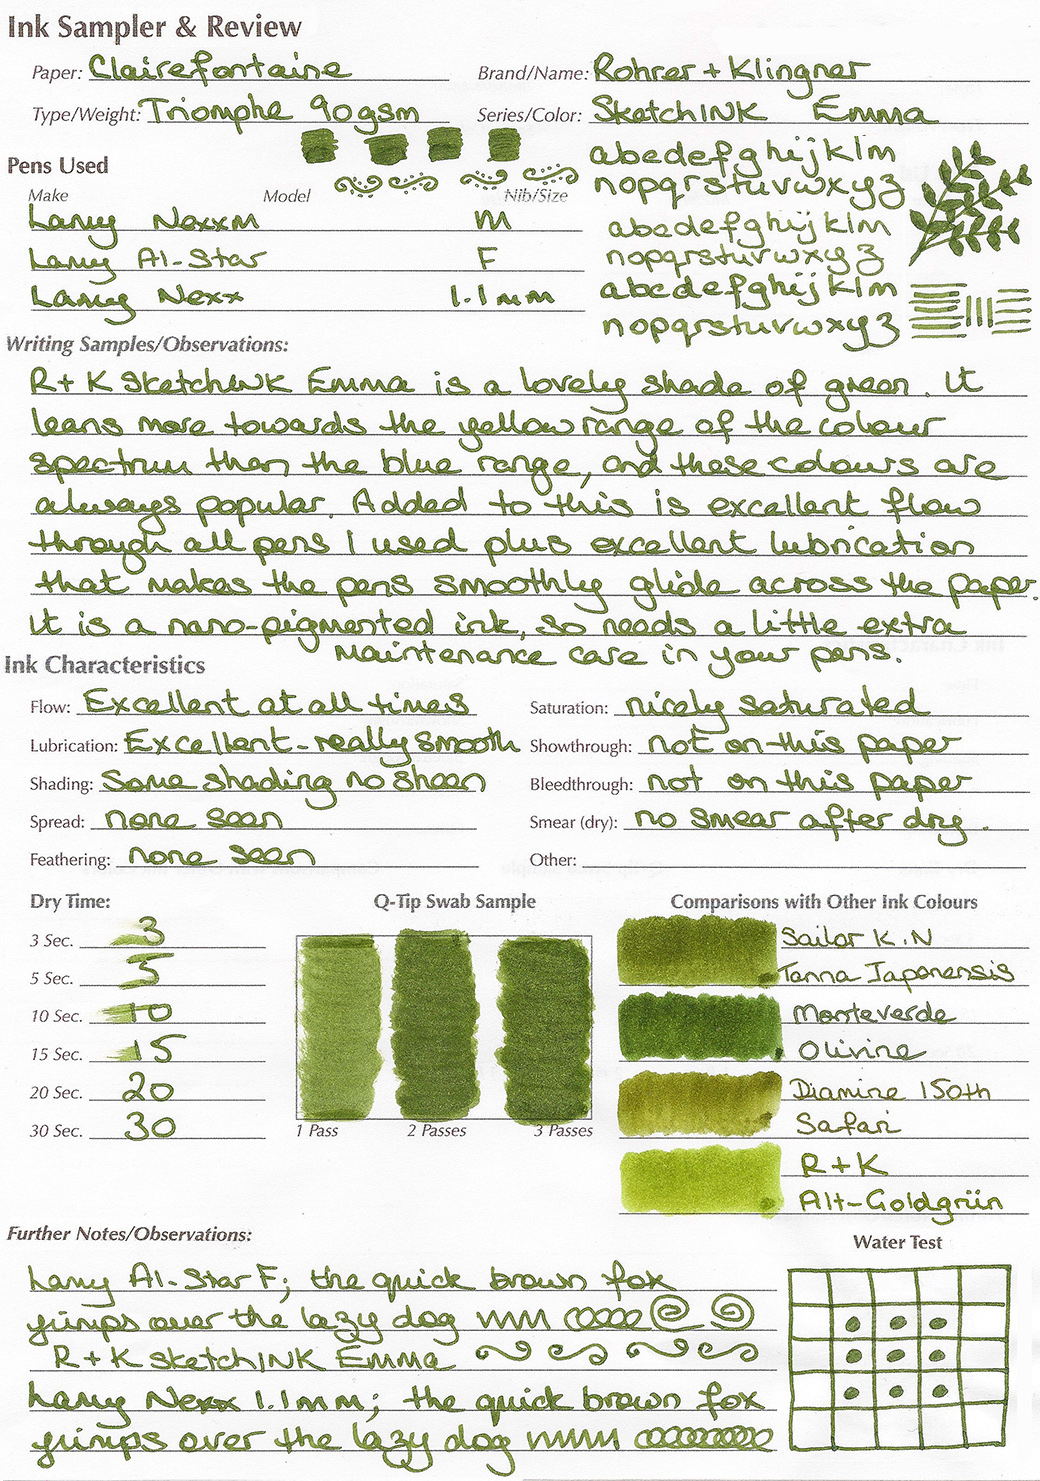 Ink Sampler & Review
Paper: Clairefontaine
Brand/Name: Rohrer + Klingner
Type/Weight: Triomphe 90gsm
Series/Color: SketchINK Emma
Pens Used
Make Model Nib/Size
Lamy Nexx M M
Lamy Al-Star F
Lamy Nexx 1.1mm
abcdefghijklm
nopqrstuvwxyz
abcdefghijklm
nopqrstuvwxyz
abcdefghijklm
nopqrstuvwxyz
Writing Samples/Observations:
R+K SketchINK Emma is a lovely shade of green. It
leans more towards the yellow range of the colour
spectrum than the blue range, and these colours are
always popular. Added to this is excellent flow
through all pens I used plus excellent lubrication
that makes the pens smoothly glide across the paper.
It is a nano-pigmented ink, so needs a little extra
maintenance care in your pens.
Ink Characteristics
Flow: Excellent at all times
Saturation: nicely saturated
Lubrication: Excellent - really smooth
Showthrough: not on this paper
Shading: Some shading no sheen
Bleedthrough: not on this paper
Spread: none seen
Smear (dry): no smear after dry.
Feathering: none seen
Other:
Dry Time:
3 Sec. 3
5 Sec. 5
10 Sec. 10
15 Sec. 15
20 Sec. 20
30 Sec. 30
Q-Tip Swab Sample
1 Pass 2 Passes 3 Passes
Comparisons with Other Ink Colours
Sailor K.N
Tanna Japonensis
Monteverde
Olivine
Diamine 150th
Safari
R+K
Alt-Goldgrün
Further Notes/Observations:
Lamy Al-Star F; the quick brown fox
jumps over the lazy dog
R+K SketchINK Emma
Lamy Nexx 1.1mm; the quick brown fox
jumps over the lazy dog
Water Test